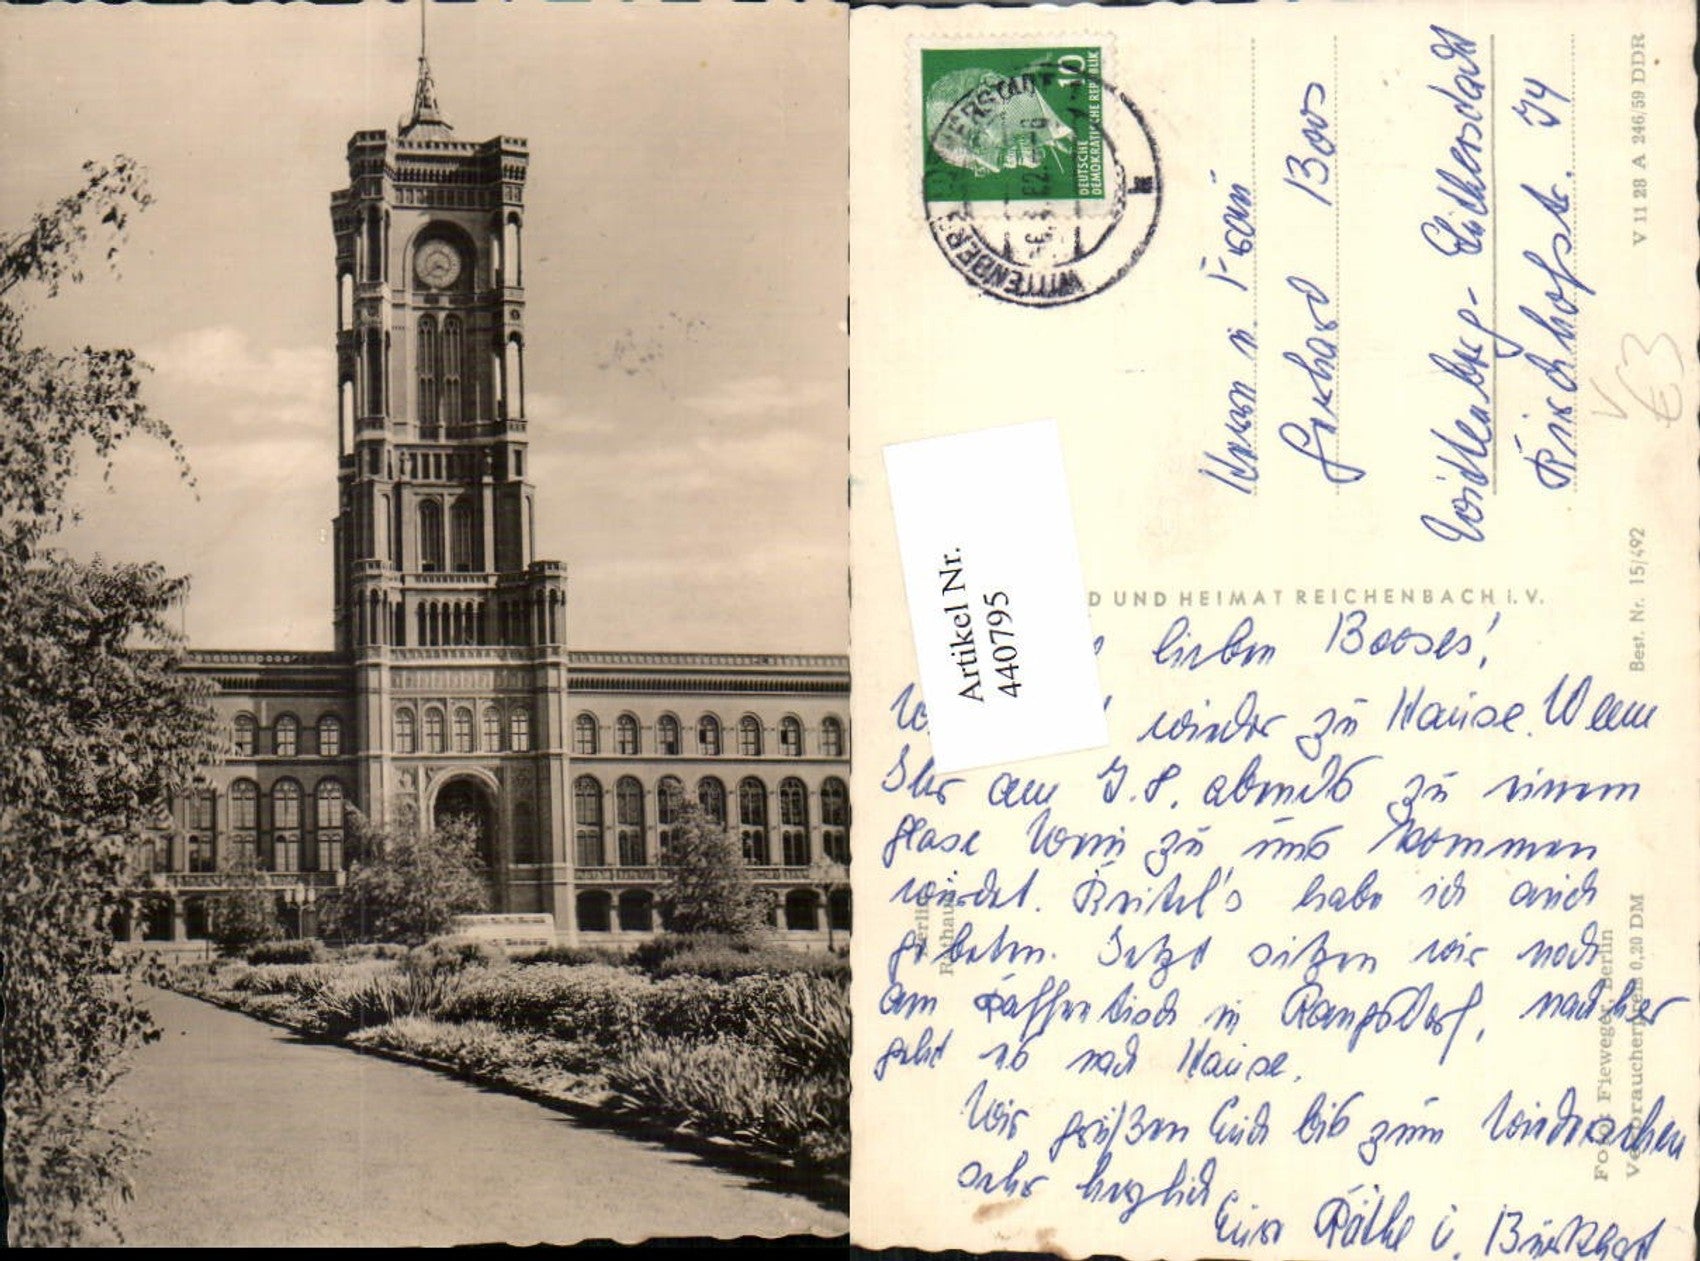 10
DEUTSCHE
DEMOKRATISCHE REPUBLIK
WITTENBERG
Herrn u. Frau
Gerhard Boos
Wittenberg-Lutherstadt
Kirchhofstr. 74
V 11 28 A 246/59 DDR
€3
Best. Nr. 15/492
Artikel Nr.
440795
D UND HEIMAT REICHENBACH i. V.
lieben Booses!
wieder zu Hause. Wenn
Ihr am 7.8. abends zu einem
Glase Wein zu uns kommen
würdet. habe ich auch
gebeten. Jetzt sitzen wir noch
am Kaffeetisch in Rangsdorf, nachher
geht es nach Hause.
Wir grüßen Euch bis zum Wiedersehen
sehr herzlich
Eure Käthe u. Burkhart
Berlin
Rathaus
Foto: Fieweger, Berlin
Verbraucherpreis 0,20 DM